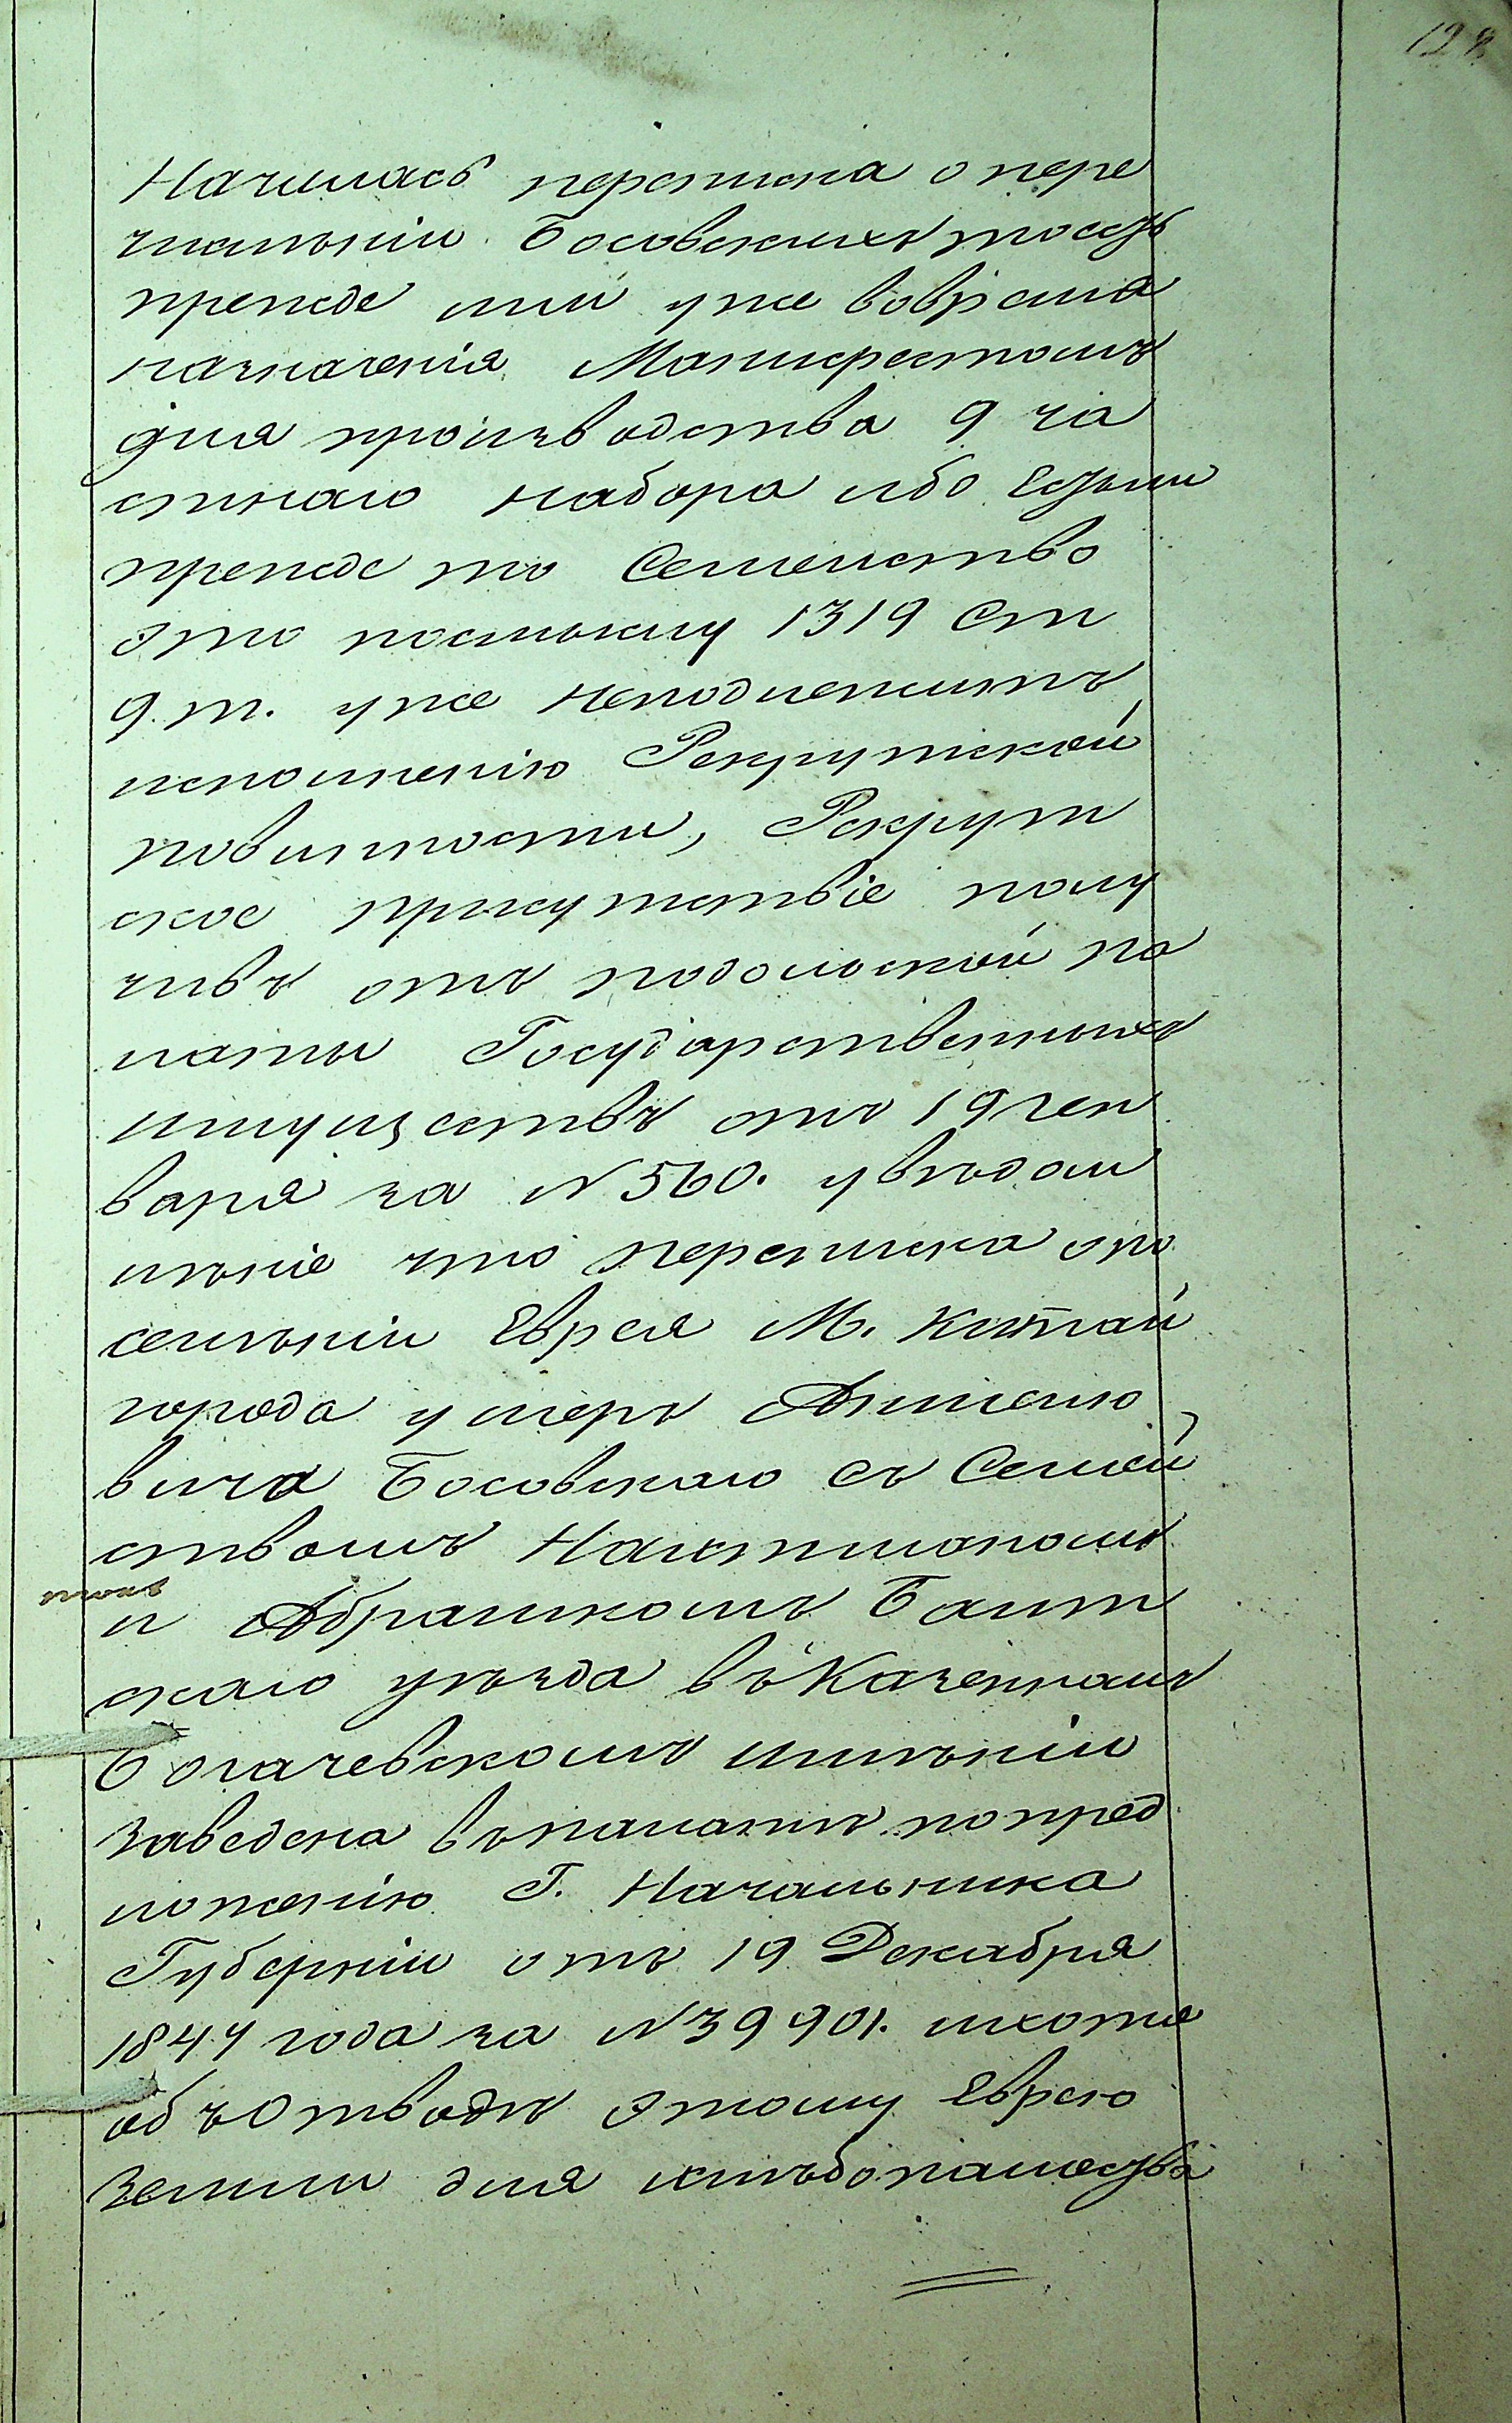 128
Началась переписка о пере
числѣнiи Босовскихъ тоесть
прежде или уже вовремя
назначенiя Манифестомъ
для произъводства 9 ча
стнаго набора ибо Естьли
прежде то Семейство
это поснльку 1319 Ст
9. т. уже неподлежитъ
исполненiю Рекрутской
повинности, Рекрут
ское присутствiе полу
чивъ отъ подольской па
латы Государственныхъ
имуществъ отъ 19 ген
варя за N 560. увѣдом
лѣнiе что переписка опо
селѣнiи Еврея М. Китай
города умеръ Аншелю
вича Босовскаго съ Семей
ствомъ
и Абрашкомъ Балт
скаго уѣзда въ Казенномъ
Богачевскомъ имѣнiи
заведена въпалатѣ попред
ложенiю Г. Начальника
Губернiи отъ 19 Декабря
1844 года за N 39901. ихотя
объ Отводѣ этому Еврею
земли для хлѣбопашества